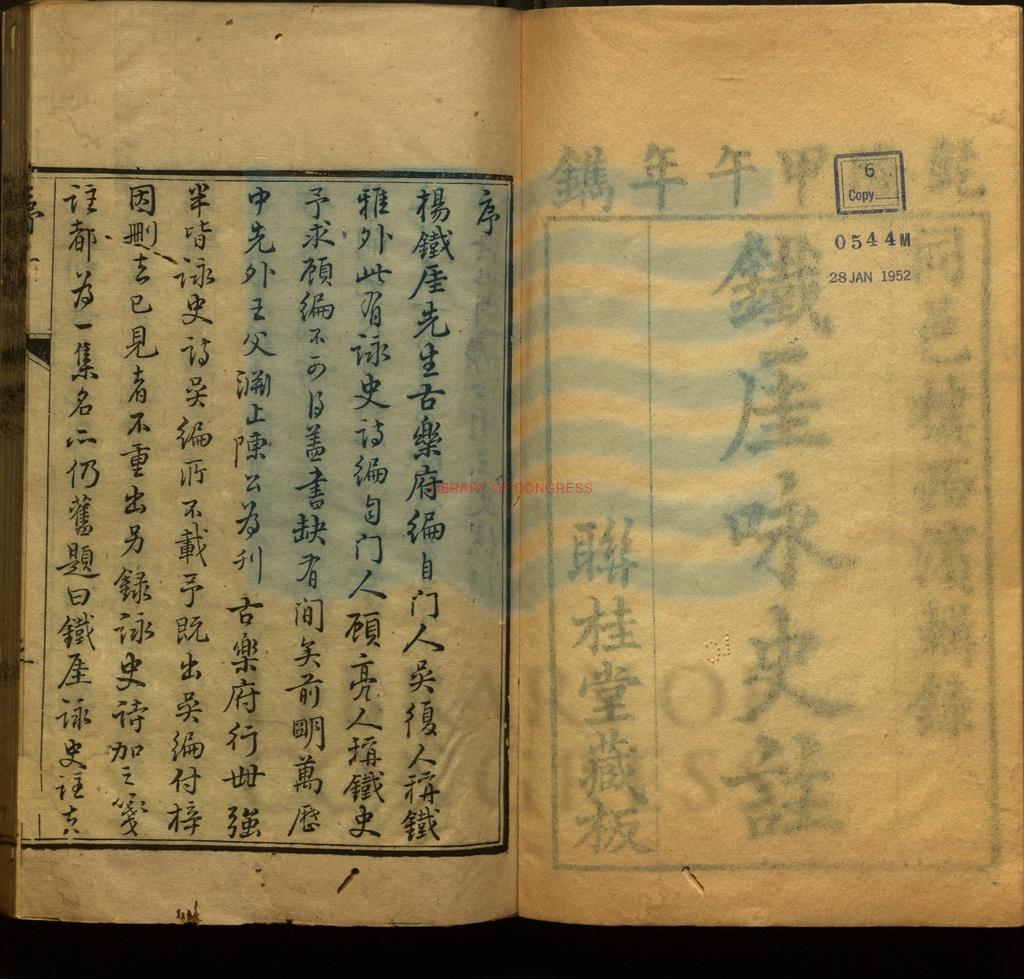 乾隆甲午年鐫
同邑樓卜瀍輯錄
鐵厓咏史註
聯桂堂藏板
6
Copy
0544M
28 JAN 1952
LIBRARY OF CONGRESS
序
楊鐵厓先生古樂府編自门人吳復人稱鐵
雅外此有詠史詩編自门人顧亮人稱鐵史
予求顧編不可得蓋書缺有间矣前明萬歷
中先外王父淵止陳公為刊古樂府行世強
半皆詠史詩吳編所不載予既出吳編付梓
因刪去已見者不重出另錄詠史詩加之箋
註都為一集名亦仍舊題曰鐵厓詠史註